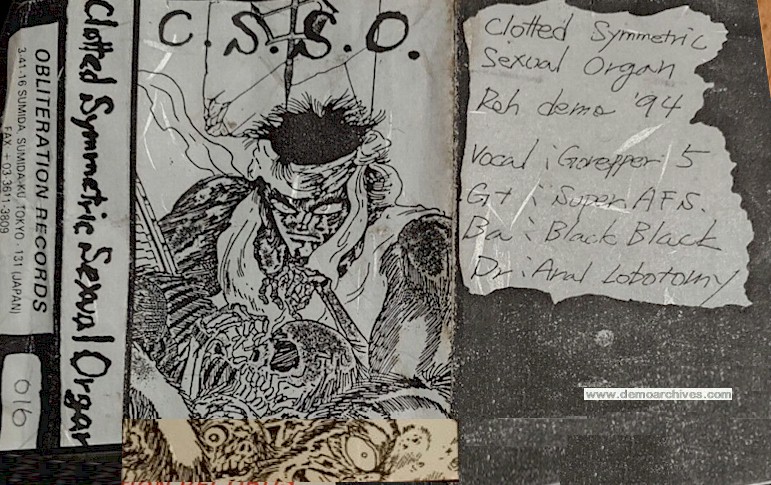 OBLITERATION RECORDS
3-41-16 SUMIDA, SUMIDA-KU, TOKYO 131 (JAPAN)
FAX + 03-3611-3809
016
Clotted Symmetric Sexual Organ
C.S.S.O.
Clotted Symmetric
Sexual Organ
Reh demo '94
Vocal : Gorepper 5
Gt : Super AFS.
Ba : Black Black
Dr : Anal Lobotomy
www.demoarchives.com